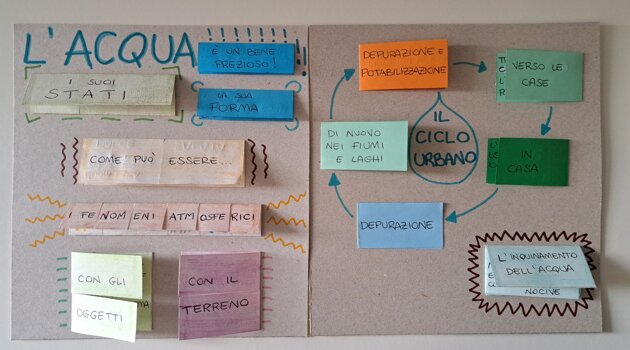 L'ACQUA!!!
È UN BENE
PREZIOSO!
I SUOI
STATI
LA SUA
FORMA
COME PUÒ ESSERE...
I FENOMENI ATMOSFERICI
CON GLI
OGGETTI
CON IL
TERRENO
DEPURAZIONE E
POTABILIZZAZIONE
VERSO LE
CASE
IN
CASA
DEPURAZIONE
DI NUOVO
NEI FIUMI
E LAGHI
IL
CICLO
URBANO
L'INQUINAMENTO
DELL'ACQUA
NOCIVE